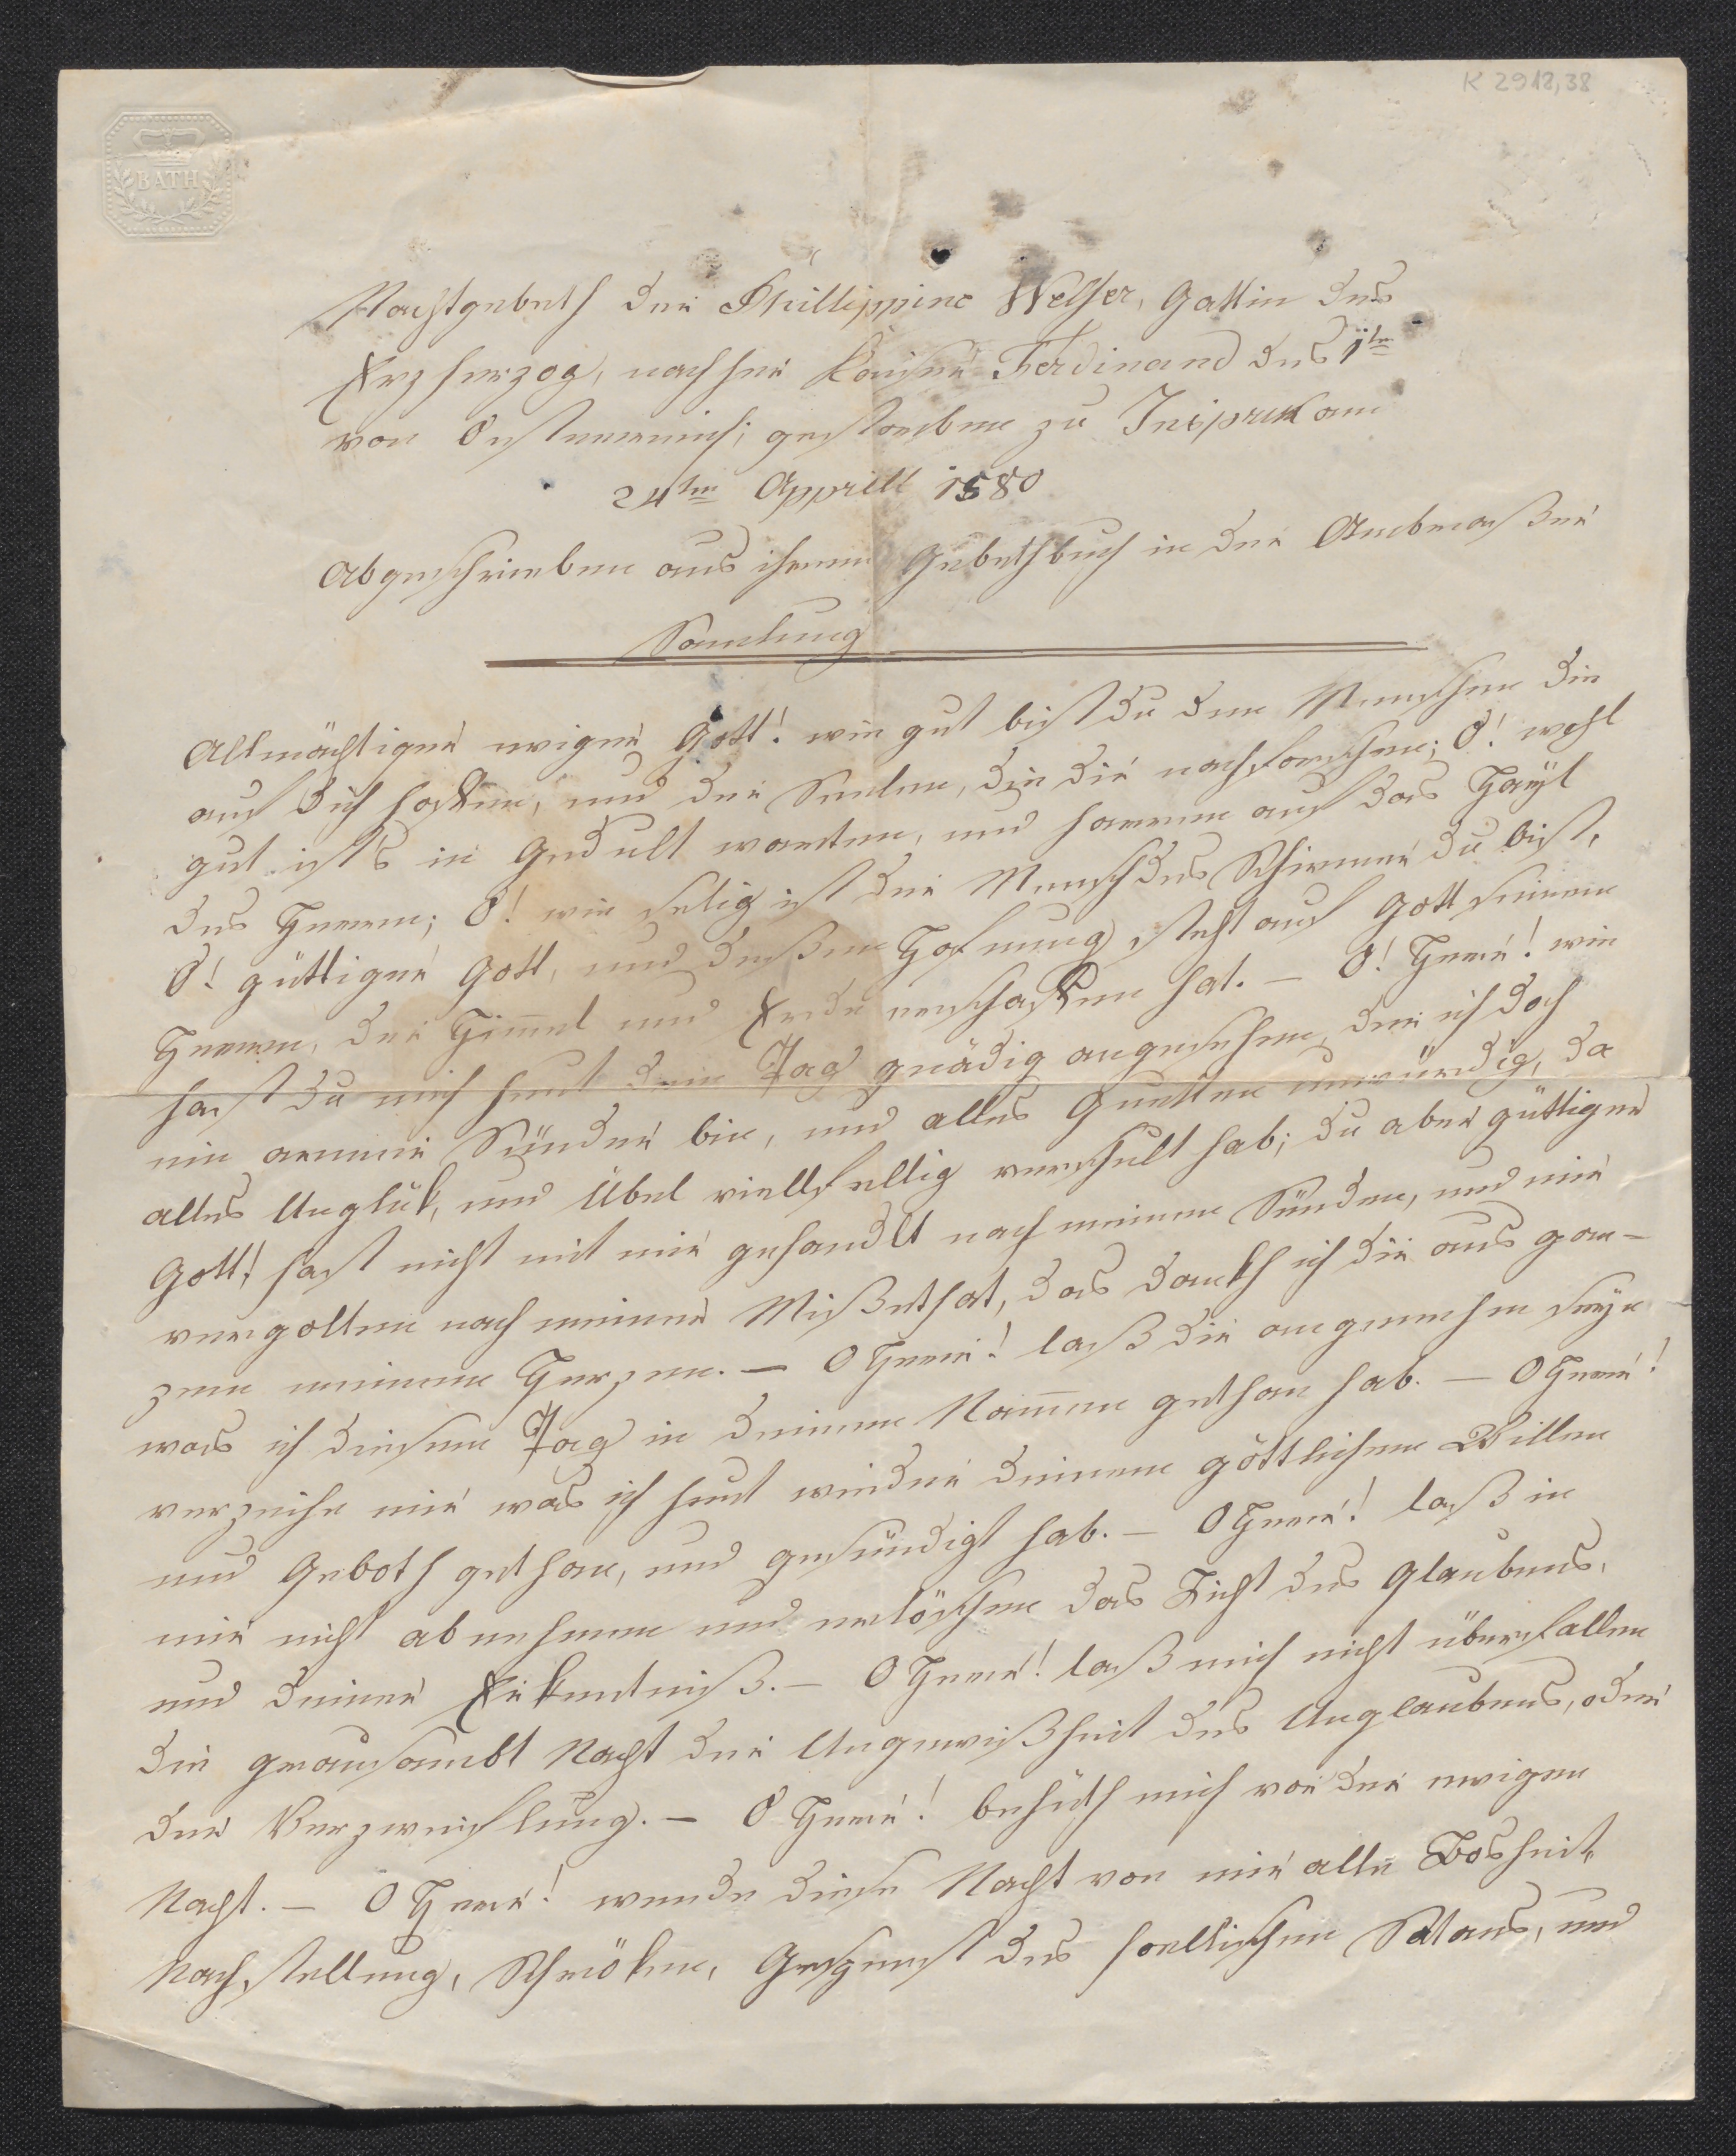 K 2912,38
BATH
Nachtgebeth der Phillippine Welser, Gattin des
Erzherzog, nachher Kaiser Ferdinand des 1ten
von Oesterreich; gestorben zu Insprukam
24ten Apprill 1580
Abgeschrieben aus ihrem Gebethbuch in der Ambraßer
Samlung
Allmächtiger ewiger Gott! wie gut bist du den Menschen die
auf dich hoffen, und der Seelen, die dir nachforschen; O! wohl
gut ist's in Gedult warten, und harren auf das Hayl
des Herren; O! wie selig ist der Mensch des Schirmer du bist,
O! güttiger Gott, und deßen Hofnung steht auf Gott seinem
Herren, der Him̄el und Erde erschaffen hat. – O! Herr! wie
hast du mich heut den Tag gnädig angesehen, der ich doch
ein armer Sünder bin, und alles Guetten unwürdig, da
alles Unglük, und Übel viellfellig verschult hab; du aber güttiger
Gott! hast nicht mit mir gehandlt nach meinen Sünden, und mir
vergolten nach meiner Mißethat, das dankh ich dir aus gan-
zem meinem Herzen. – O Herr! laß dir angenehm seyn
was ich diesen Tag in deinem Nam̄en gethan hab. – O Herr!
verzeihe mir was ich heut wieder deinem göttlichen Willen
und Geboth gethan, und gesündigt hab. – O Herr! laß in
mir nicht abnehmen und erlöschen das Licht des Glaubens,
und deiner Erkentniß. – O Herr! laß mich nicht überfallen
die grausambt Nacht der Ungewißheit des Unglaubens, oder
der Verzweiflung. – O Herr! behüth mich vor der ewigen
Nacht. – O Herr! wende diese Nacht von mir alle Bosheit,
Nachstellung, Schröken, Gespenst des hoellischen Satans, und